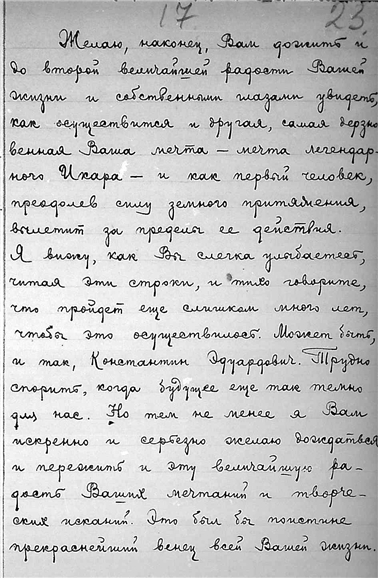 17 23.
Желаю, наконец, Вам дожить и
до второй величайшей радости Вашей
жизни и собственными глазами увидеть,
как осуществится и другая, самая дерзно
венная Ваша мечта — мечта легендар-
ного Икара — и как первый человек,
преодолев силу земного притяжения,
вылетит за пределы ее действия.
Я вижу, как Вы слегка улыбаетесь,
читая эти строки, и тихо говорите,
что пройдет еще слишком много лет,
чтобы это осуществилось. Может быть,
и так, Константин Эдуардович. Трудно
спорить, когда будущее еще так темно
для нас. Но тем не менее я Вам
искренно и серьезно желаю дождаться
и пережить и эту величайшую ра-
дость Ваших мечтаний и творче-
ских исканий. Это был бы поистине
прекраснейший венец всей Вашей жизни.